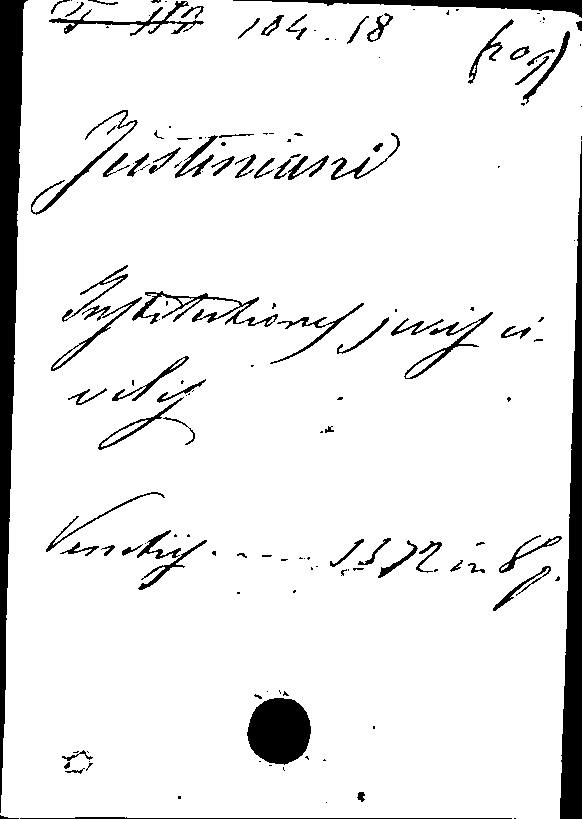 104. 18
Justiniani
Institutiones juris ci-
vilis
Venetiis. ---- 1572 in 8p.